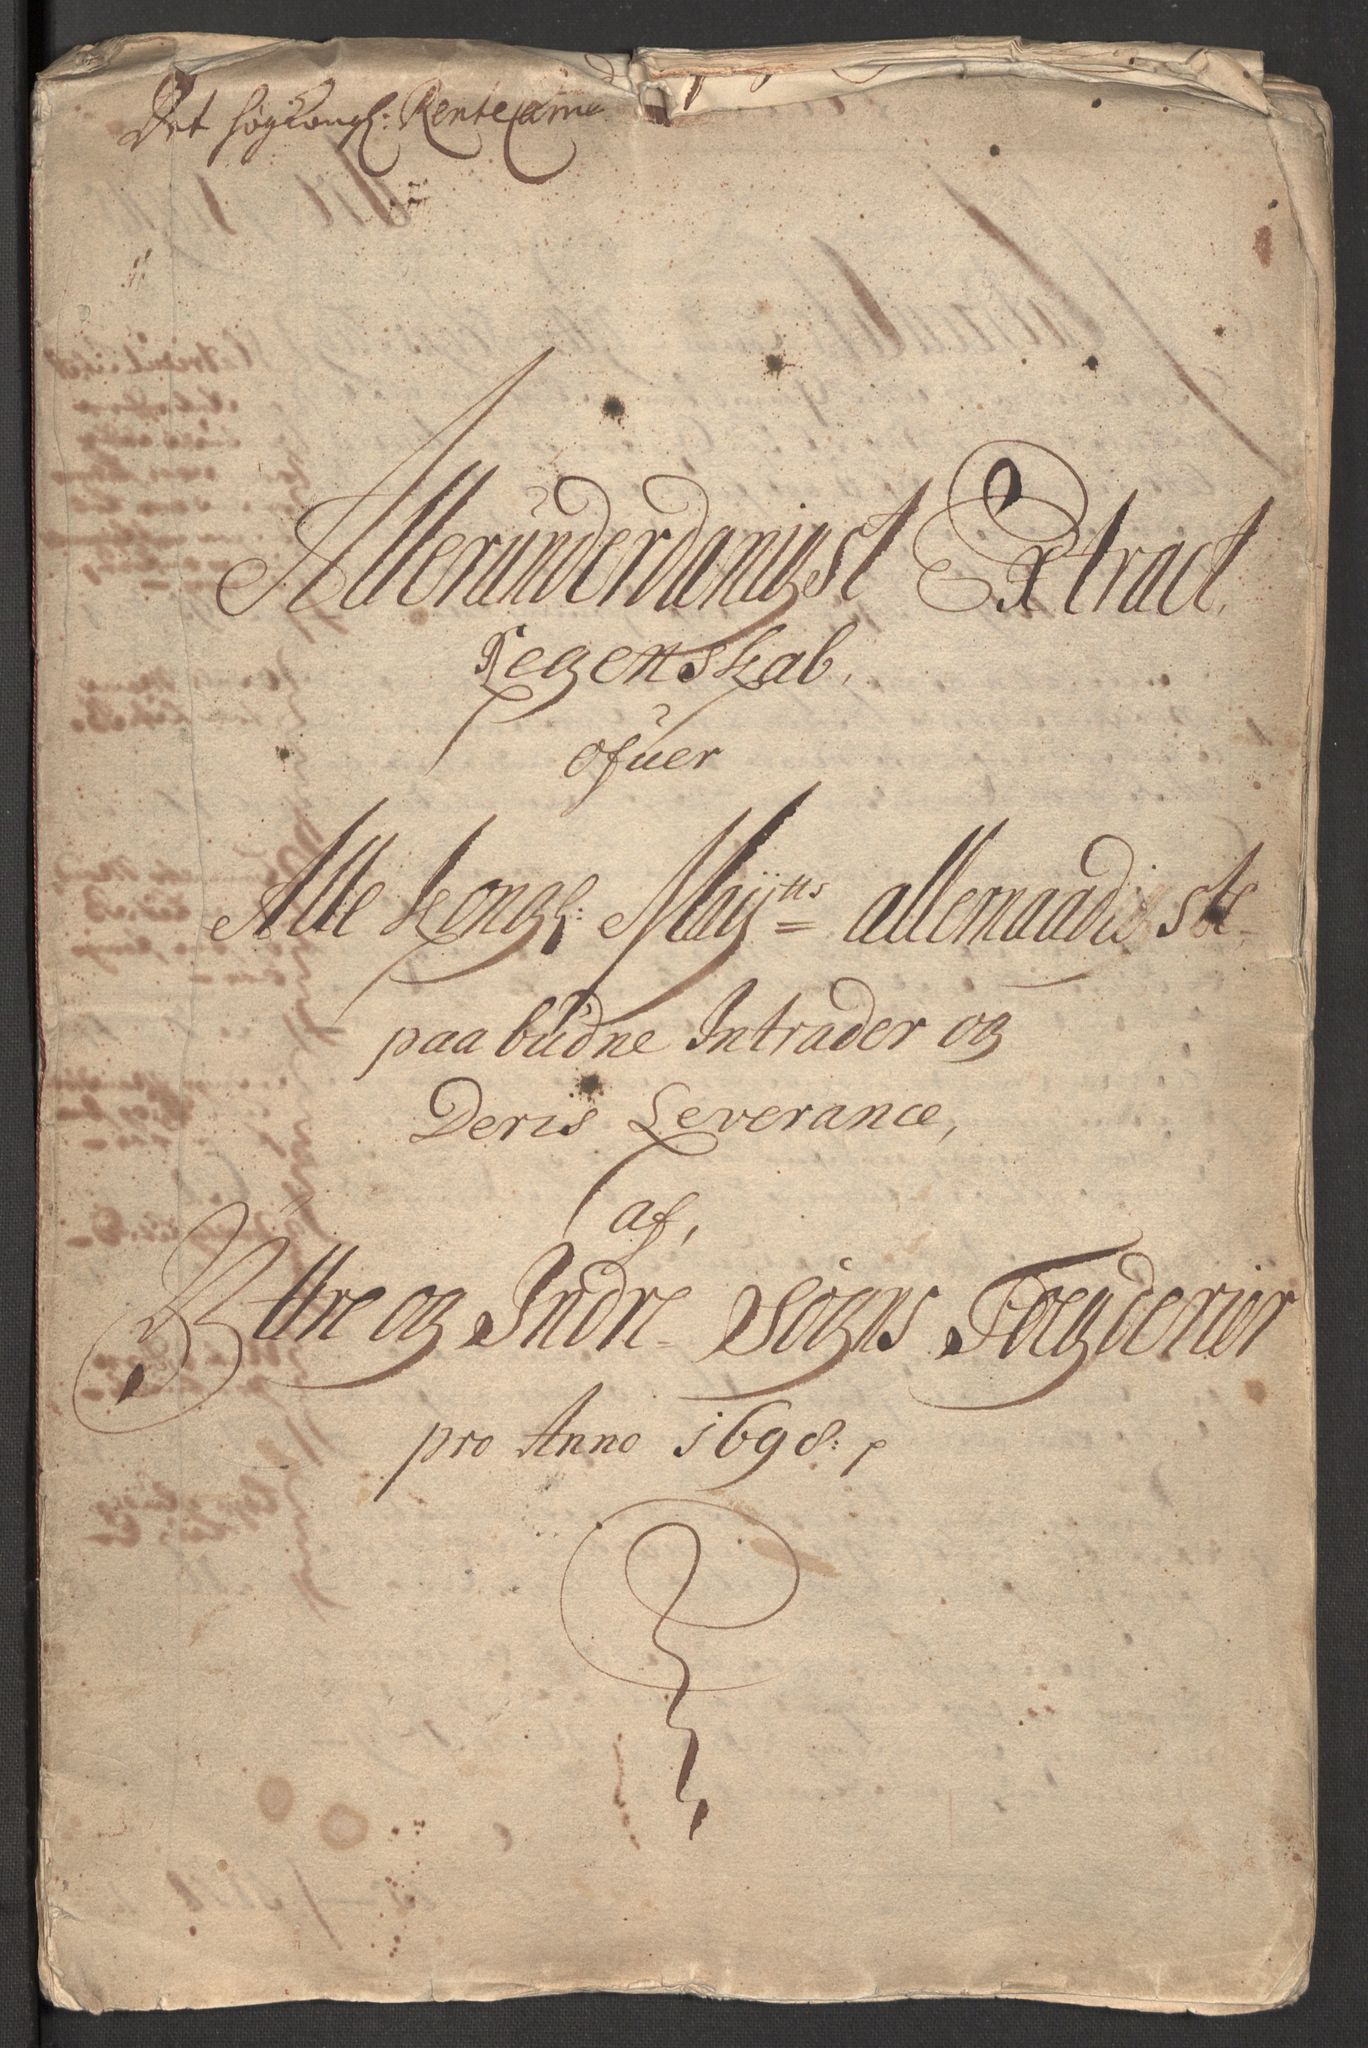 Det høgkongl: Rentecame
Allerùnderdanigst Extract
Regenskab,
ofuer
Alle kongl: Maÿtts allernaadigste
paabùdne Intrader og
Deris Leverance,
af,
Ÿttre og Indre Sogns Fogderier
pro Anno 1698: